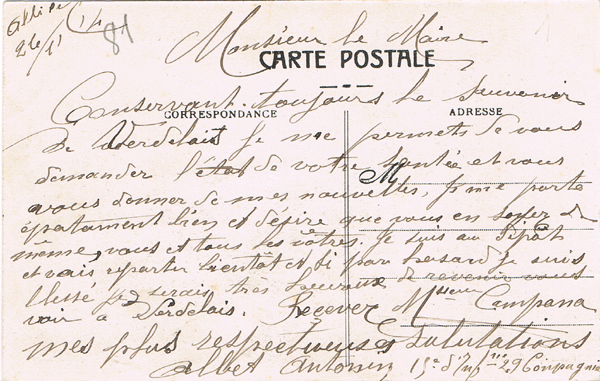 Albi le
24/11 14
81
Monsieur le Maire
CARTE POSTALE
CORRESPONDANCE
ADRESSE
M
Conservant toujours le souvenir
de Verdelais je me permets de vous
demander l'état de votre santée et vous
vous donner de mes nouvelles, je me porte
épatament bien et désire que vous en soyez de
même, vous et tous les vôtres. Je suis au Dépôt
et vais repartir bientôt et si par hasard je suis
blessé je serais très heureux de revenir vous
voir a Verdelais. Recevez Msieur Campana
mes plus respectueuses salutations
Albet Antonin 15e d'Inf rie 29 Compagnie